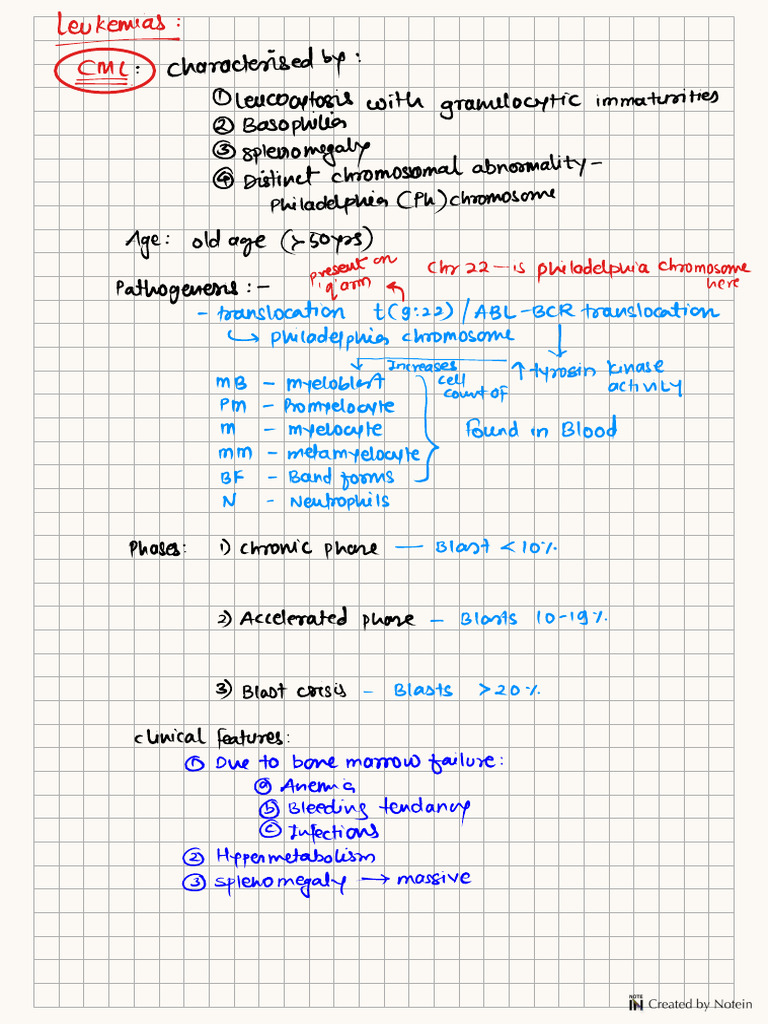 Leukemias:
CML: Characterised by:
① Leucocytosis with granulocytic immaturities
② Basophilia
③ Splenomegaly
④ Distinct chromosomal abnormality -
Philadelphia (Ph) chromosome
Age: old age (>50yrs)
present on 'q' arm
Chr 22 - is philadelphia chromosome here
Pathogenesis :-
- translocation t(9:22) / ABL-BCR translocation
↳ philadelphia chromosome
Increases cell count of
↑ tyrosin kinase activity
MB - myeloblast
PM - Promyelocyte
M - myelocyte
MM - metamyelocyte
BF - Band forms
N - Neutrophils
Found in Blood
Phases: 1) chronic phase — Blast < 10%.
2) Accelerated phase - Blasts 10-19%.
3) Blast crisis - Blasts >20%.
Clinical features:
① Due to bone marrow failure:
ⓐ Anemia
ⓑ Bleeding tendancy
ⓒ Infections
② Hypermetabolism
③ Splenomegaly → massive
NOTE IN Created by Notein